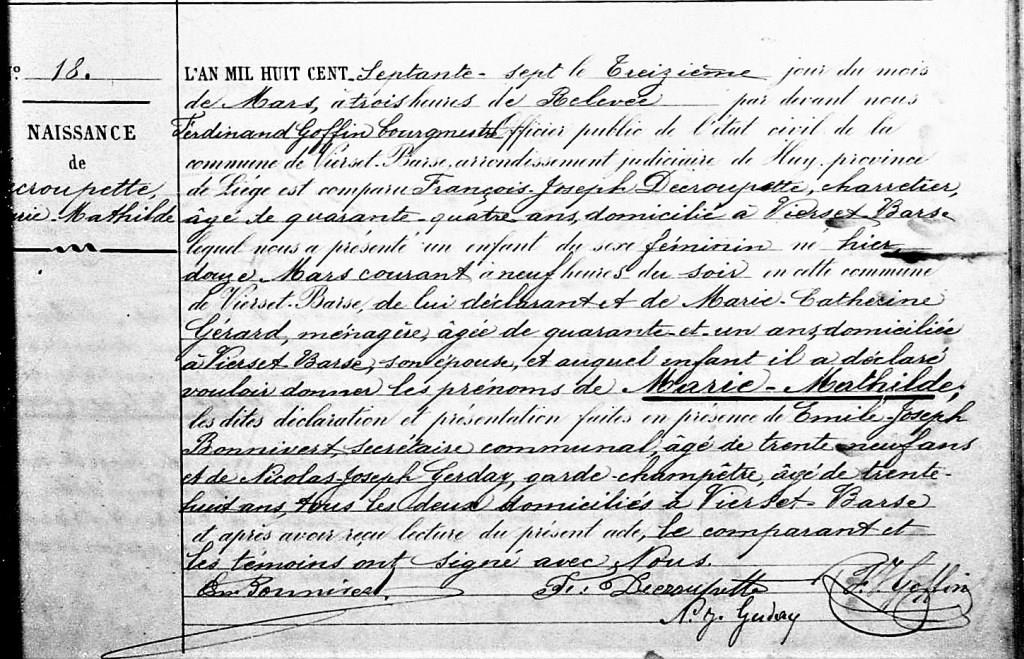 No 18.
NAISSANCE
de
croupette
rie-Mathilde
L'AN MIL HUIT CENT Septante-sept le Treizième jour du mois
de Mars, à trois heures de Relevée par devant nous
Ferdinand Goffin bourgmestre Officier public de l'état civil de la
commune de Vierset-Barse, arrondissement judiciaire de Huy, province
de Liége est comparu François-Joseph Decroupette, charretier,
âgé de quarante-quatre ans, domicilié à Vierset-Barse
lequel nous a présenté un enfant du sexe féminin né hier
douze Mars courant à neuf heures du soir en cette commune
de Vierset-Barse, de lui déclarant et de Marie-Catherine
Gérard, ménagère, âgée de quarante-et-un ans, domiciliée
à Vierset-Barse, son épouse, et auquel enfant il a déclaré
vouloir donner les prénoms de Marie-Mathilde;
les dites déclaration et présentation faites en présence de Emile-Joseph
Bonnivert, secrétaire communal, âgé de trente-neuf ans
et de Nicolas-Joseph Gerday, garde-champêtre, âgé de trente-
huit ans, tous les deux domiciliés à Vierset-Barse
et après avoir reçu lecture du présent acte, le comparant et
les témoins ont signé avec Nous.
Em Bonnivert Fs Decroupette F. Goffin
N. J. Gerday